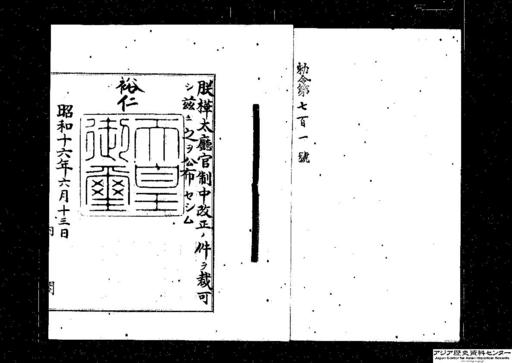 勅令第七百一號
朕樺太廳官制中改正ノ件ヲ裁可
シ茲ニ之ヲ公布セシム
裕仁
天皇御璽
昭和十六年六月十三日
内閣
アジア歴史資料センター
Japan Center for Asian Historical Records